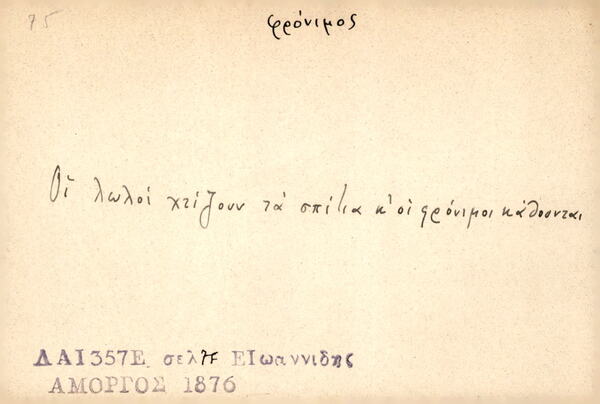 75
φρόνιμος
Οἱ λωλοί χτίζουν τά σπίτια κ' οἱ φρόνιμοι κάθουνται
ΔΑΙ357Ε σελ ΕΙωαννιδης
ΑΜΟΡΓΟΣ 1876